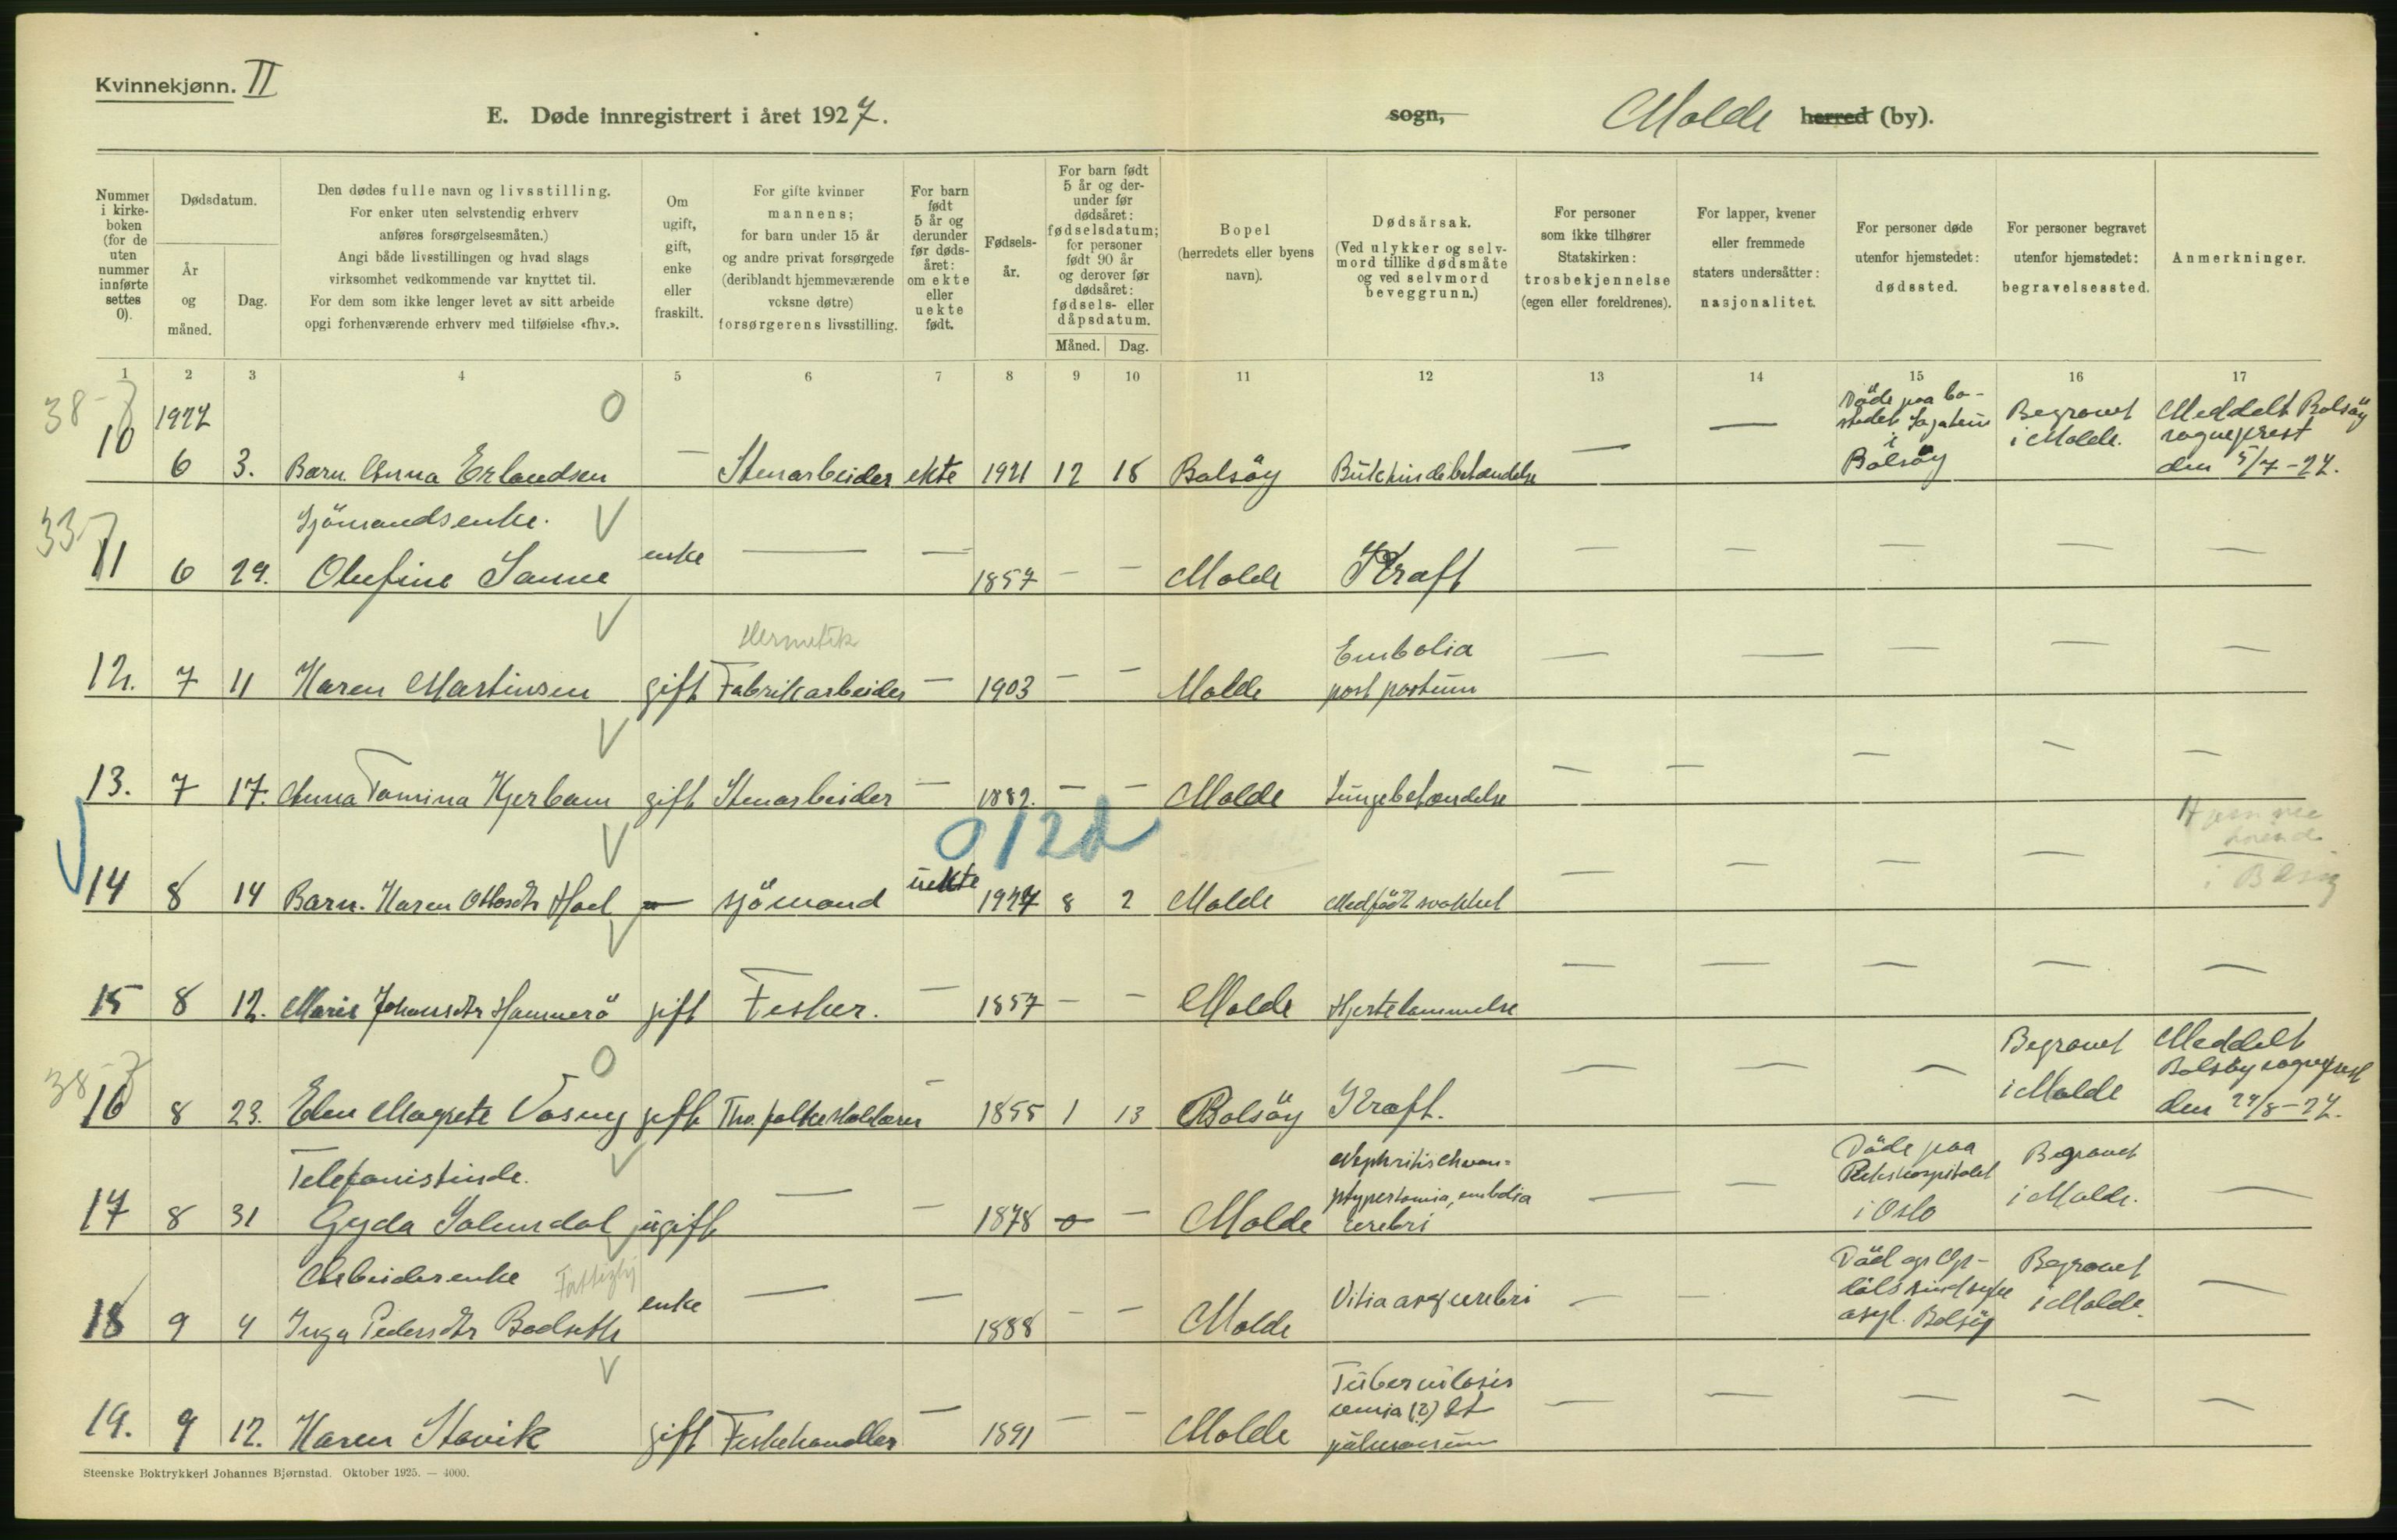 Kvinnekjønn. II
E. Døde innregistrert i året 1927.
sogn,
Molde herred (by).
Nummer i kirkeboken (for de uten nummer innførte settes 0).
Dødsdatum.
År og måned.
Dag.
Den dødes fulle navn og livsstilling.
For enker uten selvstendig erhverv
anføres forsørgelsesmåten.)
Angi både livsstillingen og hvad slags
virksomhet vedkommende var knyttet til.
For dem som ikke lenger levet av sitt arbeide
opgi forhenværende erhverv med tilføielse «fhv.».
Om ugift, gift, enke eller fraskilt.
For gifte kvinner
mannens;
for barn under 15 år
og andre privat forsørgede
(deriblandt hjemmeværende
voksne døtre)
forsørgerens livsstilling.
For barn født 5 år og derunder før dødsåret: om ekte eller uekte født.
Fødselsår.
For barn født 5 år og derunder før dødsåret: fødselsdatum; for personer født 90 år og derover før dødsåret: fødsels- eller dåpsdatum.
Måned.
Dag.
Bopel
(herredets eller byens
navn).
Dødsårsak.
(Ved ulykker og selvmord tillike dødsmåte og ved selvmord beveggrunn.)
For personer
som ikke tilhører
Statskirken:
trosbekjennelse
(egen eller foreldrenes).
For lapper, kvener
eller fremmede
staters undersåtter:
nasjonalitet.
For personer døde
utenfor hjemstedet:
dødssted.
For personer begravet
utenfor hjemstedet:
begravelsessted.
Anmerkninger.
1 2 3 4 5 6 7 8 9 10 11 12 13 14 15 16 17
38-7
1927
0
10 6 3. Barn. Anna Erlandsen — Stenarbeider ekte 1921 12 18 Bolsöy — —
Döde paa bo-
stedet
i
Bolsöy
Begravet
i Molde.
Meddelt Bolsöy
sogneprest
den 5/7-27.
33-7
Sjömandsenke.
11 6 29. Olufine Sanne enke — — 1857 — — Molde Kraft — — — — —
Hermetik
12. 7 11 Karen Martinsen gift Fabrikarbeider — 1903 — — Molde Embolia
post partum — — — — —
13. 7 17. Anna Tomina Kjerbam gift Stenarbeider — 1882. — — Molde Lungebetændelse — — — — —
0/2d
14 8 14 Barn. Karen Ottosdtr Hoel — sjömand uekte 1927 8 2 Molde Medfödt svakhet — — — — —
15 8 12. Marie Johansdtr Hammerö gift Fesker. — 1857 — — Molde Hjertelammelse — — — — —
38-7
0
16 8 23. Elen Magrete Vasney gift Fhv. folkeskolelærer — 1855 1 13 Bolsöy Kraft. — — —
Begravet
i Molde
Meddelt
Bolsöy sogneprest
den 24/8-27.
Telefonistinde.
17 8 31 Gyda Solemdal ugift — — 1878 — — Molde
Nephritis chron=
Hypertonia, embolia
cerebri
— —
Döde paa
Rikshospitalet
i Oslo
Begravet
i Molde.
—
Arbeiderenke
18 9 4 Inga Pedersdtr Bodseth enke — — 1888 — — Molde Vitia cerebri — —
Död op Op-
döls sindssyke
asyl. Bolsöy
Begravet
i Molde.
—
19. 9 12. Karen Stavik gift Feskehandler — 1891 — — Molde
Tuberculosis
(?) et
pulmonum
— — — — —
Steenske Boktrykkeri Johannes Bjørnstad. Oktober 1925. — 4000.